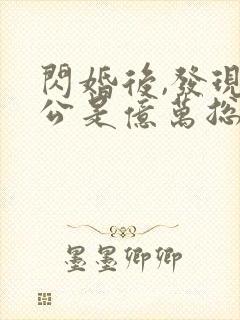 閃婚後,發現
公是億萬總
墨墨卿卿